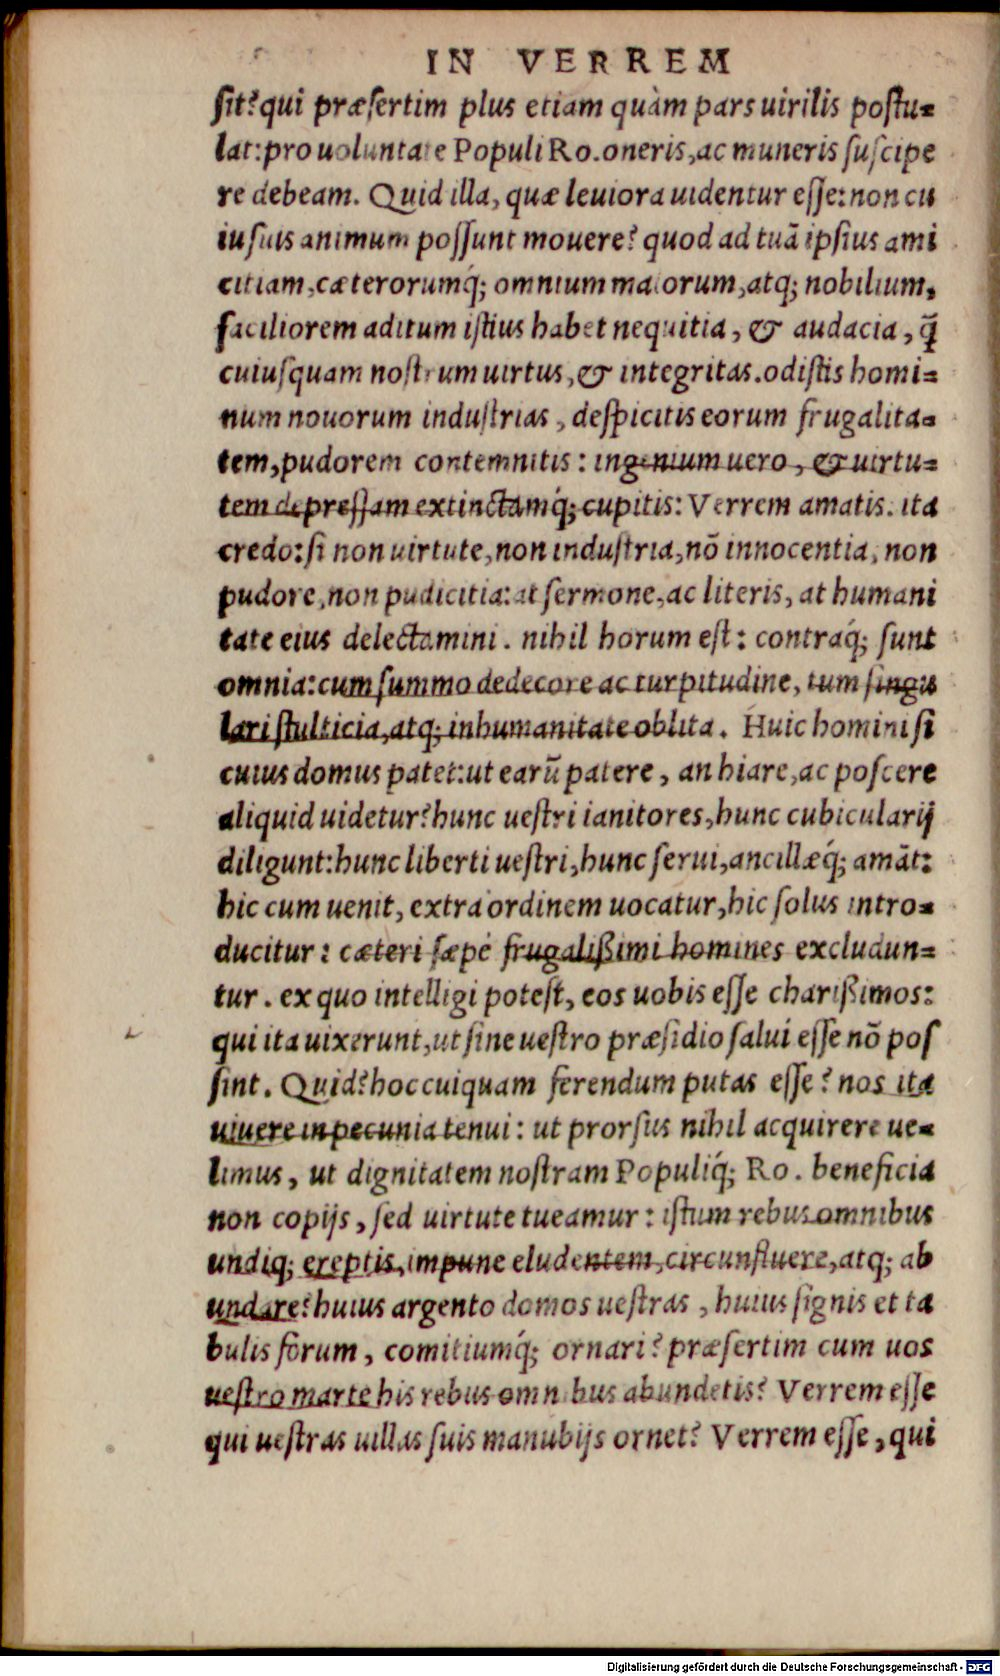 IN VERREM
sit? qui præsertim plus etiam quàm pars uirilis postu-
lat: pro uoluntate Populi Ro. oneris, ac muneris suscipe
re debeam. Quid illa, quæ leuiora uidentur esse: non cu
iusuis animum possunt mouere? quod ad tuã ipsius ami
citiam, cæterorumq́; omnium maiorum, atq; nobilium,
faciliorem aditum istius habet nequitia, & audacia, q̃
cuiusquam nostrum uirtus, & integritas. odistis homi-
num nouorum industrias, despicitis eorum frugalita-
tem, pudorem contemnitis: ingenium uero, & uirtu-
tem depressam extinctamq́; cupitis: Verrem amatis. ita
credo: si non uirtute, non industria, nõ innocentia, non
pudore, non pudicitia: at sermone, ac literis, at humani
tate eius delectamini. nihil horum est: contraq́; sunt
omnia: cum summo dedecore ac turpitudine, tum singu
lari stulticia, atq; inhumanitate oblita. Huic homini si
cuius domus patet: ut earũ patere, an hiare, ac poscere
aliquid uidetur? hunc uestri ianitores, hunc cubicularij
diligunt: hunc liberti uestri, hunc serui, ancillæq́; amãt:
hic cum uenit, extra ordinem uocatur, hic solus intro-
ducitur: cæteri sæpe frugalißimi homines excludun-
tur. ex quo intelligi potest, eos uobis esse charißimos:
qui ita uixerunt, ut sine uestro præsidio salui esse nõ pos
sint. Quid? hoc cuiquam ferendum putas esse? nos ita
uiuere in pecunia tenui: ut prorsus nihil acquirere ue-
limus, ut dignitatem nostram Populiq́; Ro. beneficia
non copijs, sed uirtute tueamur: istum rebus omnibus
undiq; ereptis, impune eludentem, circunfluere, atq; ab
undare? huius argento domos uestras, huius signis et ta
bulis forum, comitiumq́; ornari? præsertim cum uos
uestro marte his rebus omnibus abundetis? Verrem esse
qui uestras uillas suis manubijs ornet? Verrem esse, qui
Digitalisierung gefördert durch die Deutsche Forschungsgemeinschaft - DFG